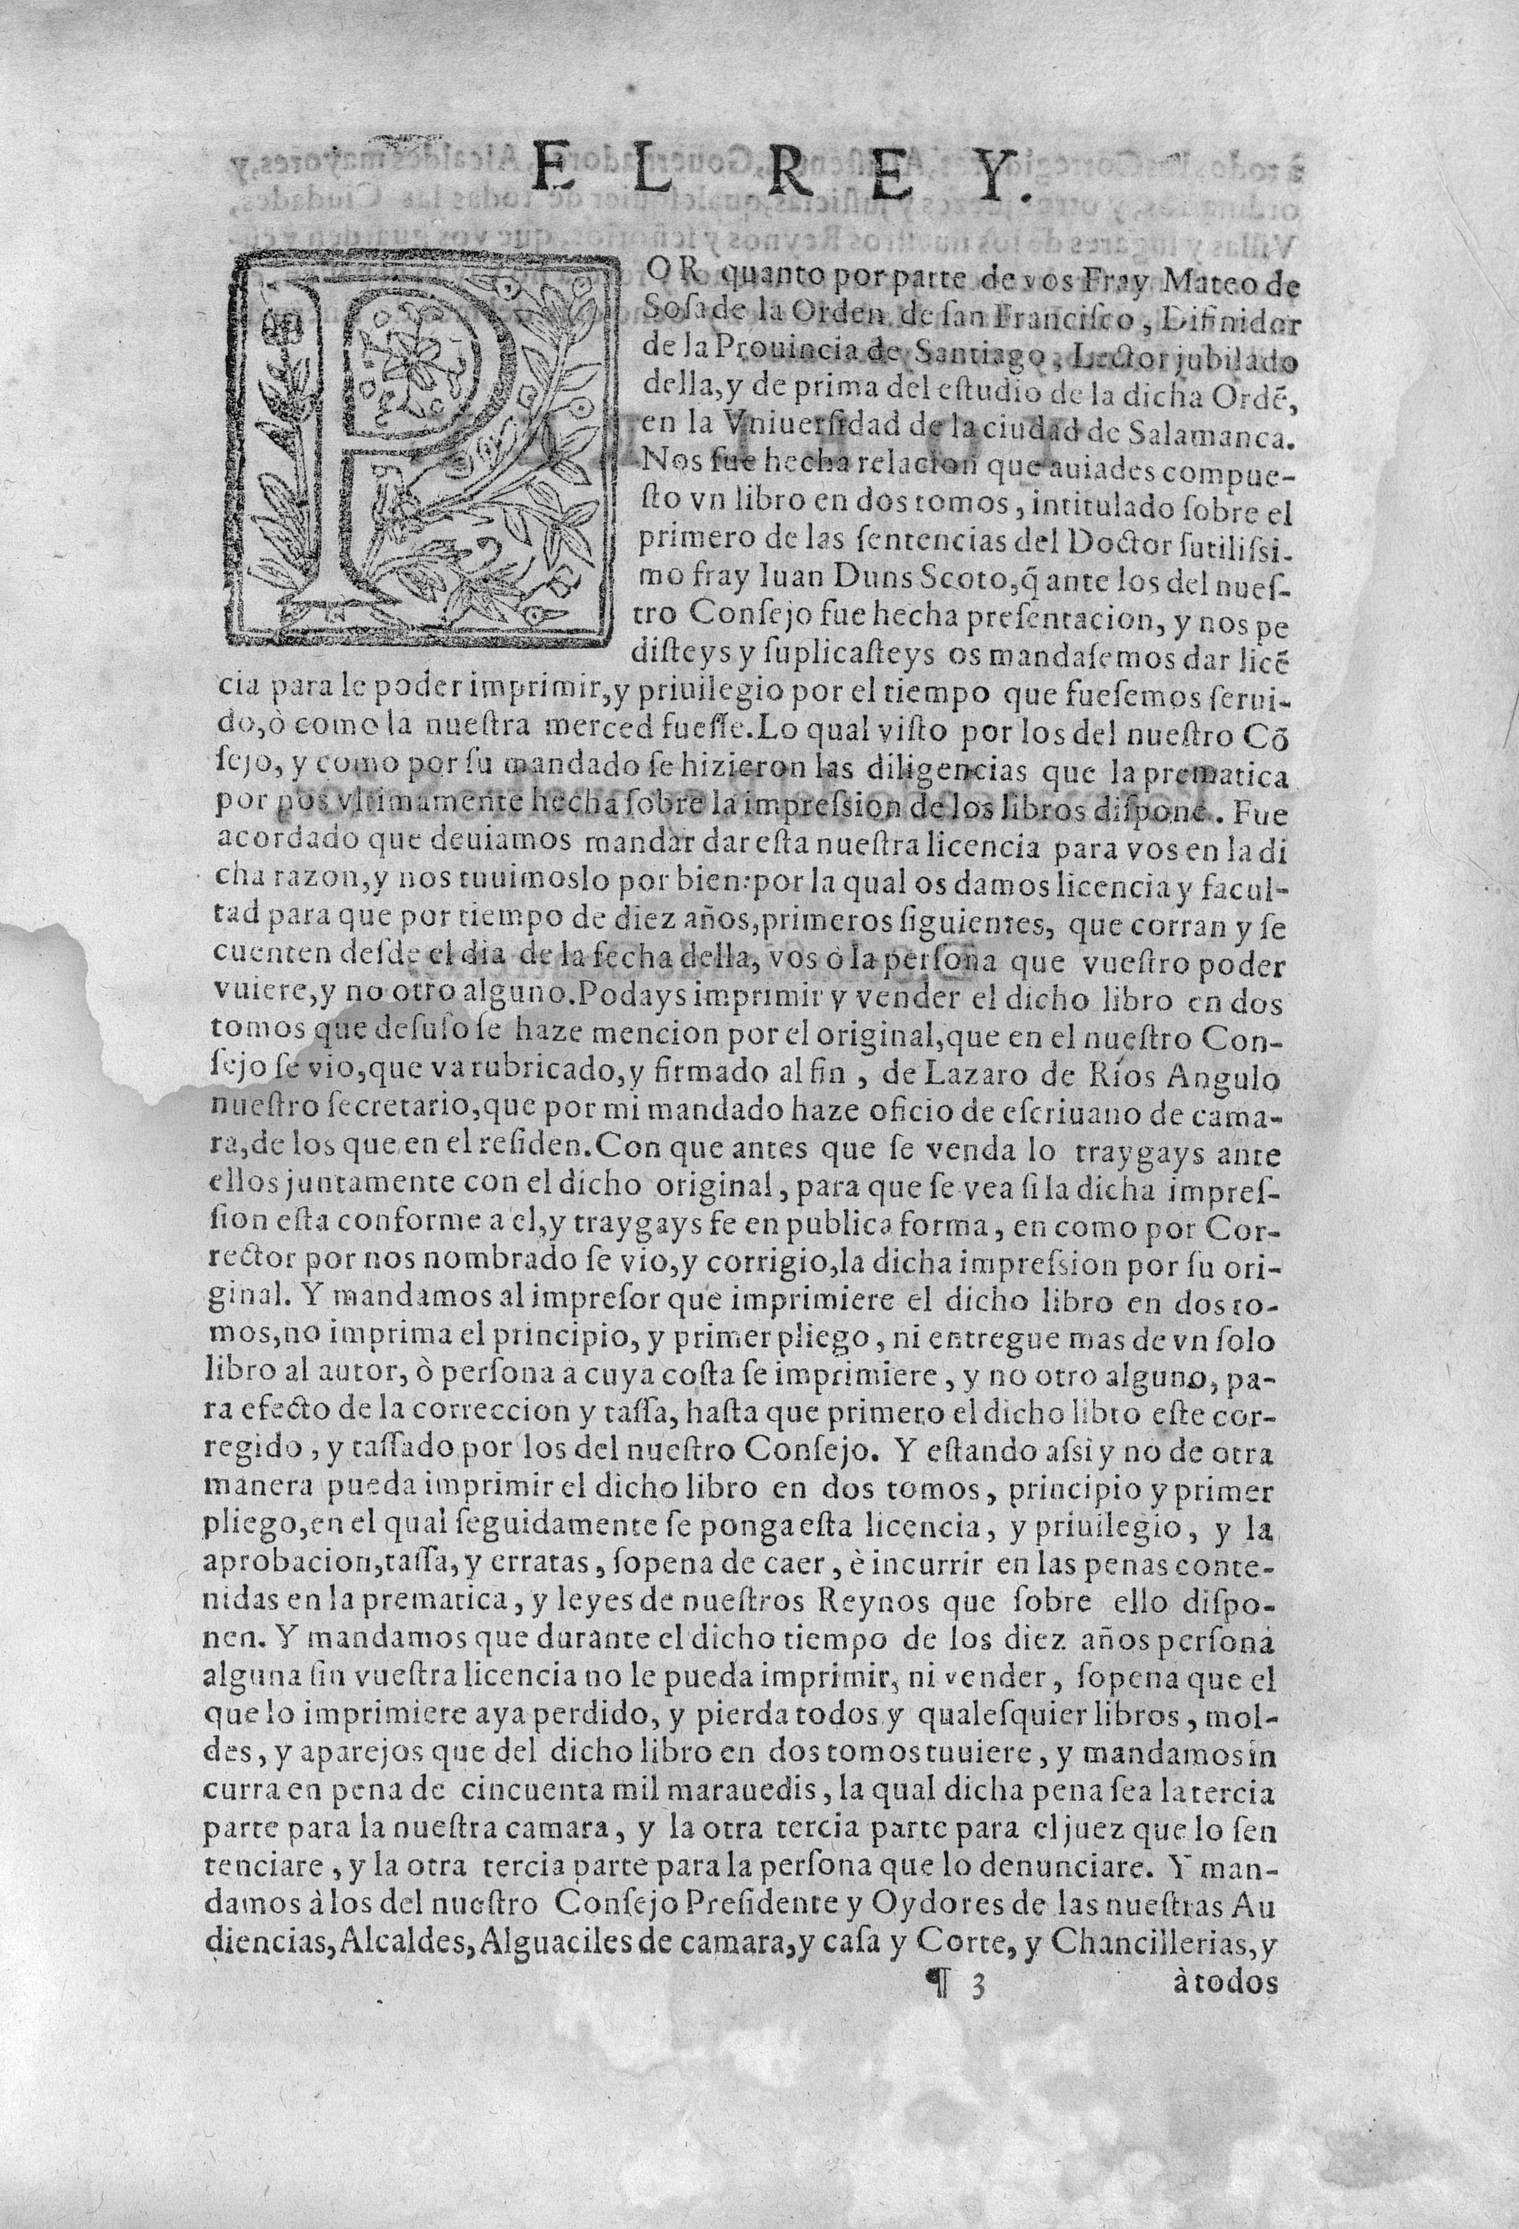 E L R E Y.
POR quanto por parte de vos Fray Mateo de
Soſa de la Orden de ſan Franciſco, Difinidor
de la Prouincia de Santiago, Lector jubilado
della, y de prima del eſtudio de la dicha Ordẽ,
en la Vniuerſidad de la ciudad de Salamanca.
Nos fue hecha relacion que auiades compue-
ſto vn libro en dos tomos, intitulado ſobre el
primero de las ſentencias del Doctor ſutiliſsi-
mo fray Iuan Duns Scoto, q̃ ante los del nueſ-
tro Conſejo fue hecha preſentacion, y nos pe
diſteys y ſuplicaſteys os mandaſemos dar licẽ
cia para le poder imprimir, y priuilegio por el tiempo que fueſemos ſerui-
do, ò como la nueſtra merced fueſſe. Lo qual viſto por los del nueſtro Cõ
ſejo, y como por ſu mandado ſe hizieron las diligencias que la prematica
por nos vltimamente hecha ſobre la impreſsion de los libros diſpone. Fue
acordado que deuiamos mandar dar eſta nueſtra licencia para vos en la di
cha razon, y nos tuuimoslo por bien: por la qual os damos licencia y facul-
tad para que por tiempo de diez años, primeros ſiguientes, que corran y ſe
cuenten deſde el dia de la fecha della, vos ò la perſona que vueſtro poder
vuiere, y no otro alguno. Podays imprimir y vender el dicho libro en dos
tomos que deſuſo ſe haze mencion por el original, que en el nueſtro Con-
ſejo ſe vio, que va rubricado, y firmado al fin, de Lazaro de Ríos Angulo
nueſtro ſecretario, que por mi mandado haze oficio de eſcriuano de cama-
ra, de los que en el reſiden. Con que antes que ſe venda lo traygays ante
ellos juntamente con el dicho original, para que ſe vea ſi la dicha impreſ-
ſion eſta conforme a el, y traygays fe en publica forma, en como por Cor-
rector por nos nombrado ſe vio, y corrigio, la dicha impreſsion por ſu ori-
ginal. Y mandamos al impreſor que imprimiere el dicho libro en dos to-
mos, no imprima el principio, y primer pliego, ni entregue mas de vn ſolo
libro al autor, ò perſona a cuya coſta ſe imprimiere, y no otro alguno, pa-
ra efecto de la correccion y taſſa, haſta que primero el dicho libro eſte cor-
regido, y taſſado por los del nueſtro Conſejo. Y eſtando aſsi y no de otra
manera pueda imprimir el dicho libro en dos tomos, principio y primer
pliego, en el qual ſeguidamente ſe ponga eſta licencia, y priuilegio, y la
aprobacion, taſſa, y erratas, ſopena de caer, è incurrir en las penas conte-
nidas en la prematica, y leyes de nueſtros Reynos que ſobre ello diſpo-
nen. Y mandamos que durante el dicho tiempo de los diez años perſona
alguna ſin vueſtra licencia no le pueda imprimir, ni vender, ſopena que el
que lo imprimiere aya perdido, y pierda todos y qualeſquier libros, mol-
des, y aparejos que del dicho libro en dos tomos tuuiere, y mandamos in
curra en pena de cincuenta mil marauedis, la qual dicha pena ſea la tercia
parte para la nueſtra camara, y la otra tercia parte para el juez que lo ſen
tenciare, y la otra tercia parte para la perſona que lo denunciare. Y man-
damos à los del nueſtro Conſejo Preſidente y Oydores de las nueſtras Au
diencias, Alcaldes, Alguaciles de camara, y caſa y Corte, y Chancillerias, y
¶ 3 à todos